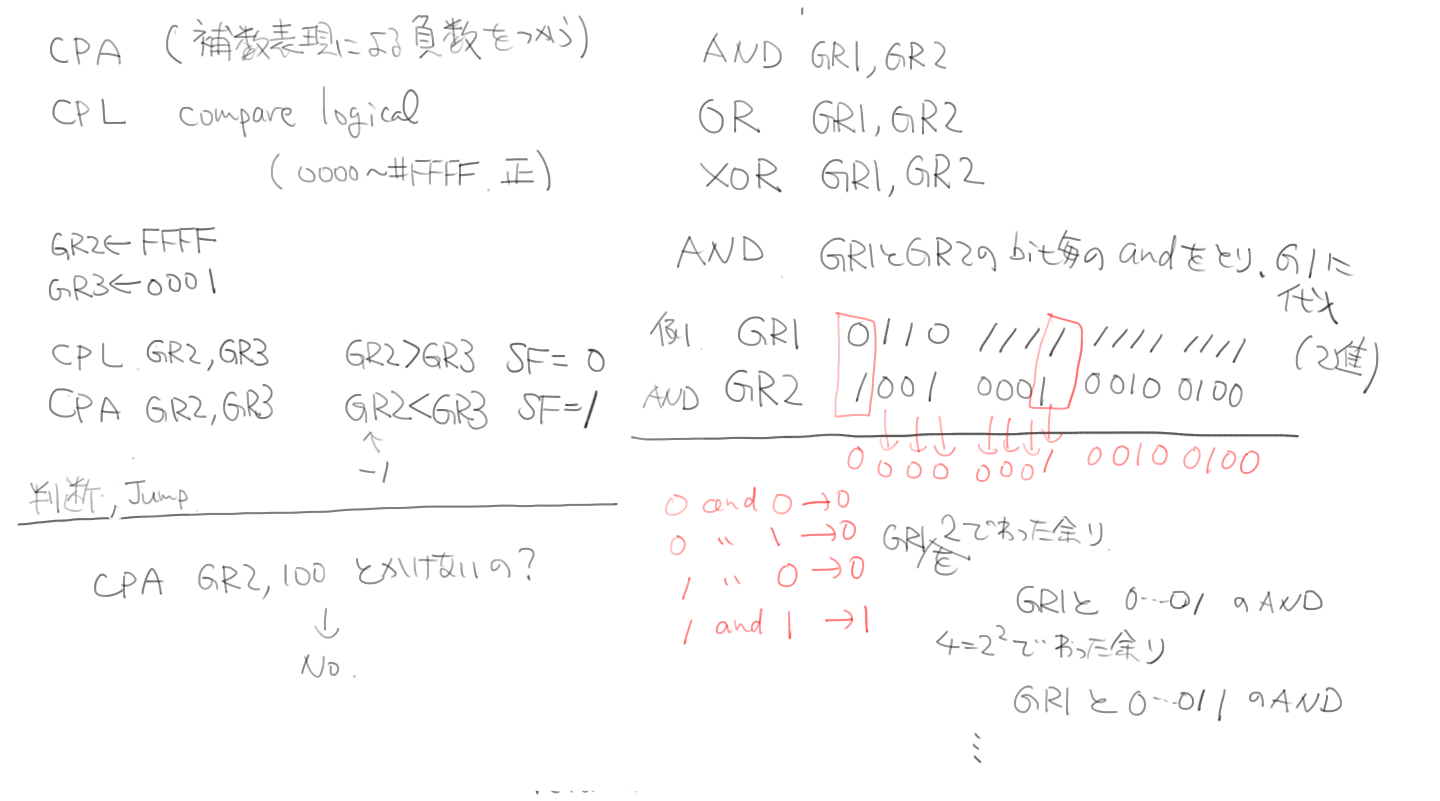 CPA (補数表現による負数をつかう)
CPL compare logical
(0000~#FFFF 正)
GR2←FFFF
GR3←0001
CPL GR2,GR3 GR2>GR3 SF=0
CPA GR2,GR3 GR2<GR3 SF=1
↑
-1
判断, Jump
CPA GR2,100 とかけないの?
↓
No.
AND GR1,GR2
OR GR1,GR2
XOR GR1,GR2
AND GR1とGR2のbit毎のandをとり、G1に
代入
例1 GR1 0110 1111 1111 1111 (2進)
AND GR2 1001 0001 0010 0100
0000 0001 0010 0100
0 and 0→0
0 〃 1→0
1 〃 0→0
1 and 1→1
GR1を2でわった余り
GR1と 0…01 のAND
4=2²でわった余り
GR1と0…011のAND
⋮